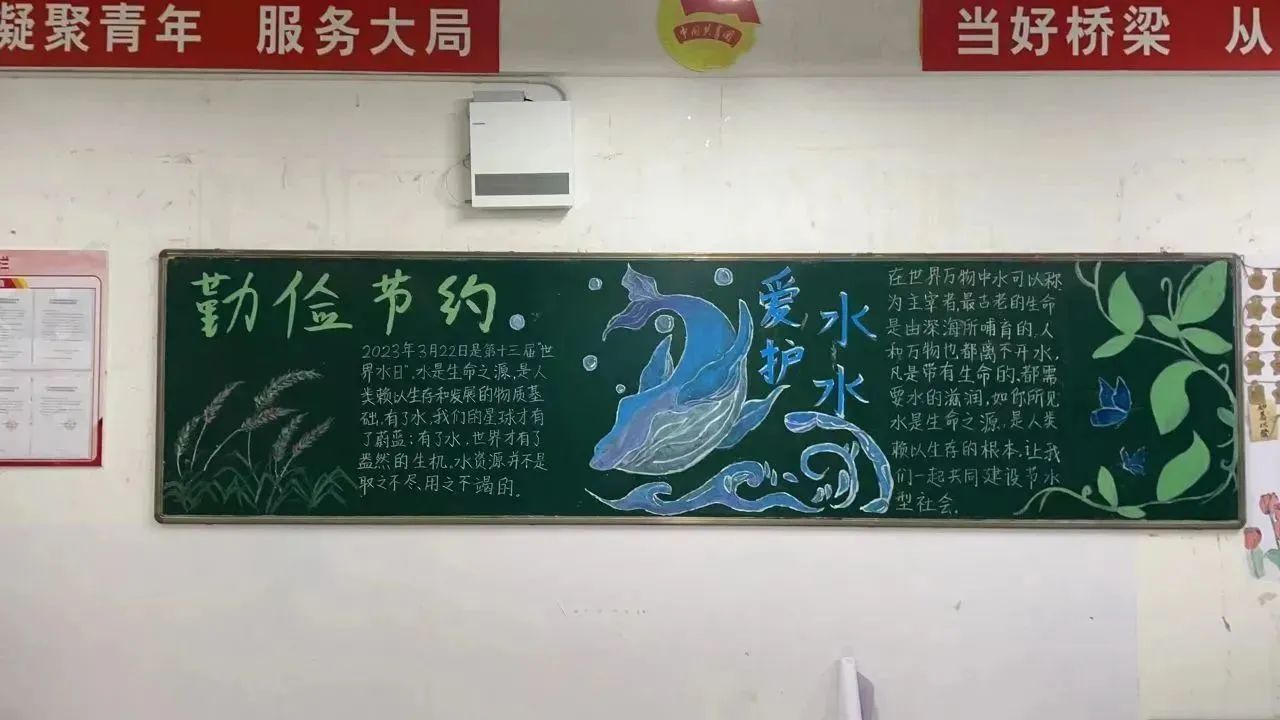 凝聚青年 服务大局
中国共青团
当好桥梁 从
栏
勤俭节约
2023年3月22日是第十三届"世
界水日",水是生命之源,是人
类赖以生存和发展的物质基
础,有了水,我们的星球才有
了蔚蓝;有了水,世界才有了
盎然的生机,水资源并不是
取之不尽,用之不竭的。
爱护
水水
在世界万物中水可以称
为主宰者,最古老的生命
是由深海所哺育的,人
和万物也都离不开水,
凡是带有生命的,都需
要水的滋润,如你所见
水是生命之源,是人类
赖以生存的根本,让我
们一起共同建设节水
型社会。